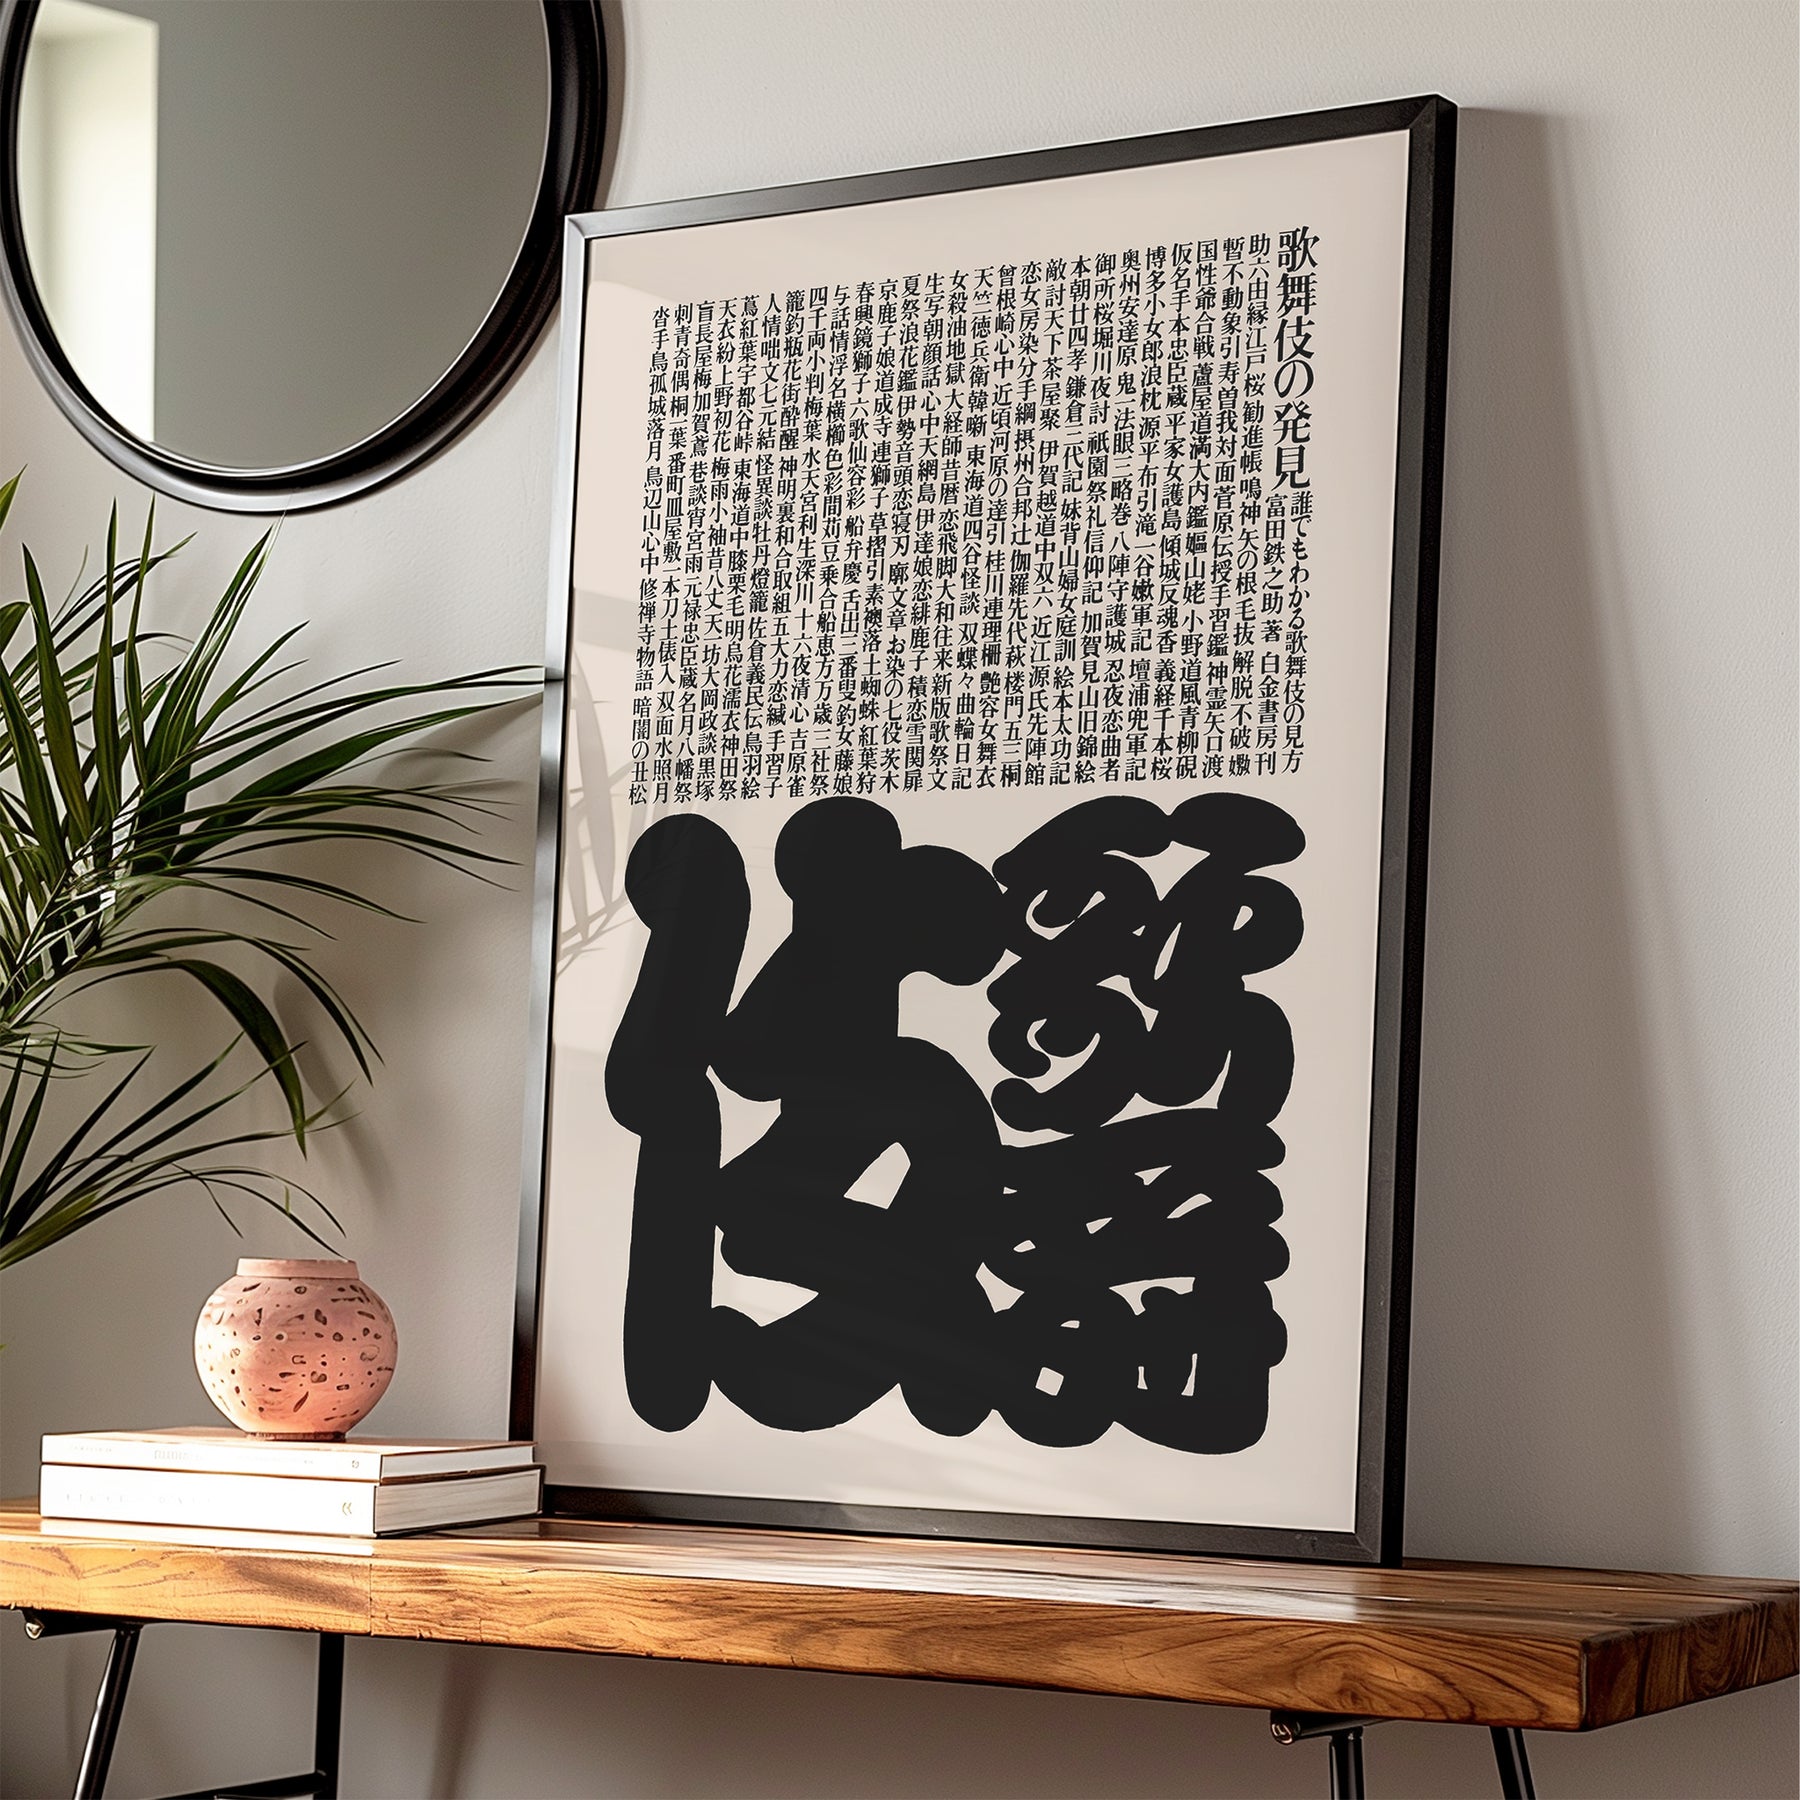 歌舞伎の発見
誰でもわかる歌舞伎の見方
富田鉄之助 著 白金書房刊
助六由縁江戸桜 勧進帳 鳴神 矢の根 毛抜 解脱 不破 嫐
暫 不動 象引 寿曽我対面 菅原伝授手習鑑 神霊矢口渡
国性爺合戦 蘆屋道満大内鑑 嫗山姥 小野道風青柳硯
仮名手本忠臣蔵 平家女護島 傾城反魂香 義経千本桜
博多小女郎浪枕 源平布引滝 一谷嫩軍記 壇浦兜軍記
奥州安達原 鬼一法眼三略巻 八陣守護城 忍夜恋曲者
御所桜堀川夜討 祇園祭礼信仰記 加賀見山旧錦絵
本朝廿四孝 鎌倉三代記 妹背山婦女庭訓 絵本太功記
敵討天下茶屋聚 伊賀越道中双六 近江源氏先陣館
恋女房染分手綱 摂州合邦辻 伽羅先代萩 楼門五三桐
曽根崎心中 近頃河原の達引 桂川連理柵 艶容女舞衣
天竺徳兵衛韓噺 東海道四谷怪談 双蝶々曲輪日記
女殺油地獄 大経師昔暦 恋飛脚大和往来 新版歌祭文
生写朝顔話 心中天網島 伊達娘恋緋鹿子 積恋雪関扉
夏祭浪花鑑 伊勢音頭恋寝刃 廓文章 お染の七役 茨木
京鹿子娘道成寺 連獅子 草摺引 素襖落 土蜘蛛 紅葉狩
春興鏡獅子 六歌仙容彩 船弁慶 舌出三番叟 釣女 藤娘
与話情浮名横櫛 色彩間苅豆 乗合船恵方万歳 三社祭
四千両小判梅葉 水天宮利生深川 十六夜清心 吉原雀
籠釣瓶花街酔醒 神明裏和合取組 五大力恋緘 手習子
人情咄文七元結 怪異談牡丹燈籠 佐倉義民伝 鳥羽絵
蔦紅葉宇都谷峠 東海道中膝栗毛 明烏花濡衣 神田祭
天衣紛上野初花 梅雨小袖昔八丈 天一坊大岡政談 黒塚
盲長屋梅加賀鳶 巷談宵宮雨 元禄忠臣蔵 名月八幡祭
刺青奇偶 桐一葉 番町皿屋敷 一本刀土俵入 双面水照月
沓手鳥孤城落月 鳥辺山心中 修禅寺物語 暗闇の丑松
歌舞
伎